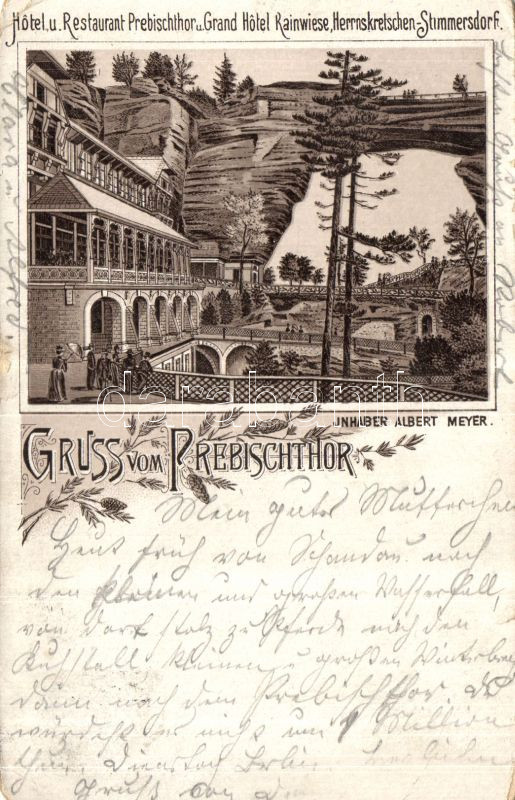 Hôtel u. Restaurant Prebischthor u. Grand Hôtel Rainwiese, Herrnskretschen-Stimmersdorf.
INHABER ALBERT MEYER.
darabanth
GRUSS VOM PREBISCHTHOR
Mein gutes Mutterchen
Heut früh von Schandau nach
den kleinen und großen Wasserfall,
von dort stolz zu Pferde nach den
Kuhstall kleinen u großen Winterberg
dann nach dem Prebischthor. Du
würdest es nicht um 1 Million
thun. Dienstag Berlin
Gruß von